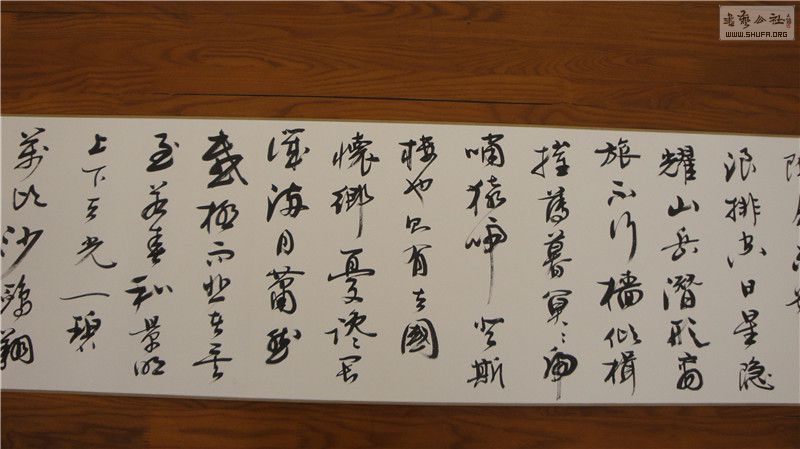 書藝公社
WWW.SHUFA.ORG
浪排空日星隐
耀山岳潛形商
旅不行檣倾楫
摧薄暮冥〻虎
嘯猿啼登斯
樓也則有去國
懷鄉憂讒畏
譏滿目蕭然
感極而悲者矣
至若春和景明
上下天光一碧
萬頃沙鷗翔